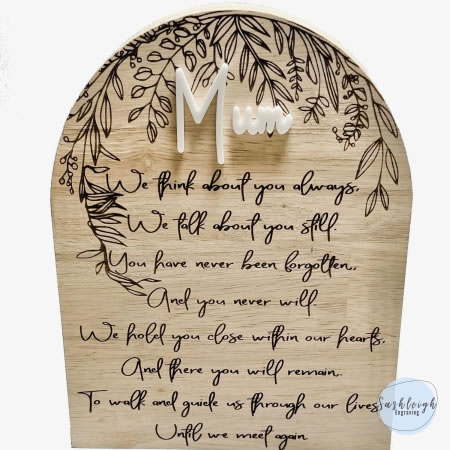 Mum
We think about you always,
We talk about you still.
You have never been forgotten,
And you never will.
We hold you close within our hearts,
And there you will remain.
To walk and guide us through our lives
Until we meet again.
Sashleigh
Engraving